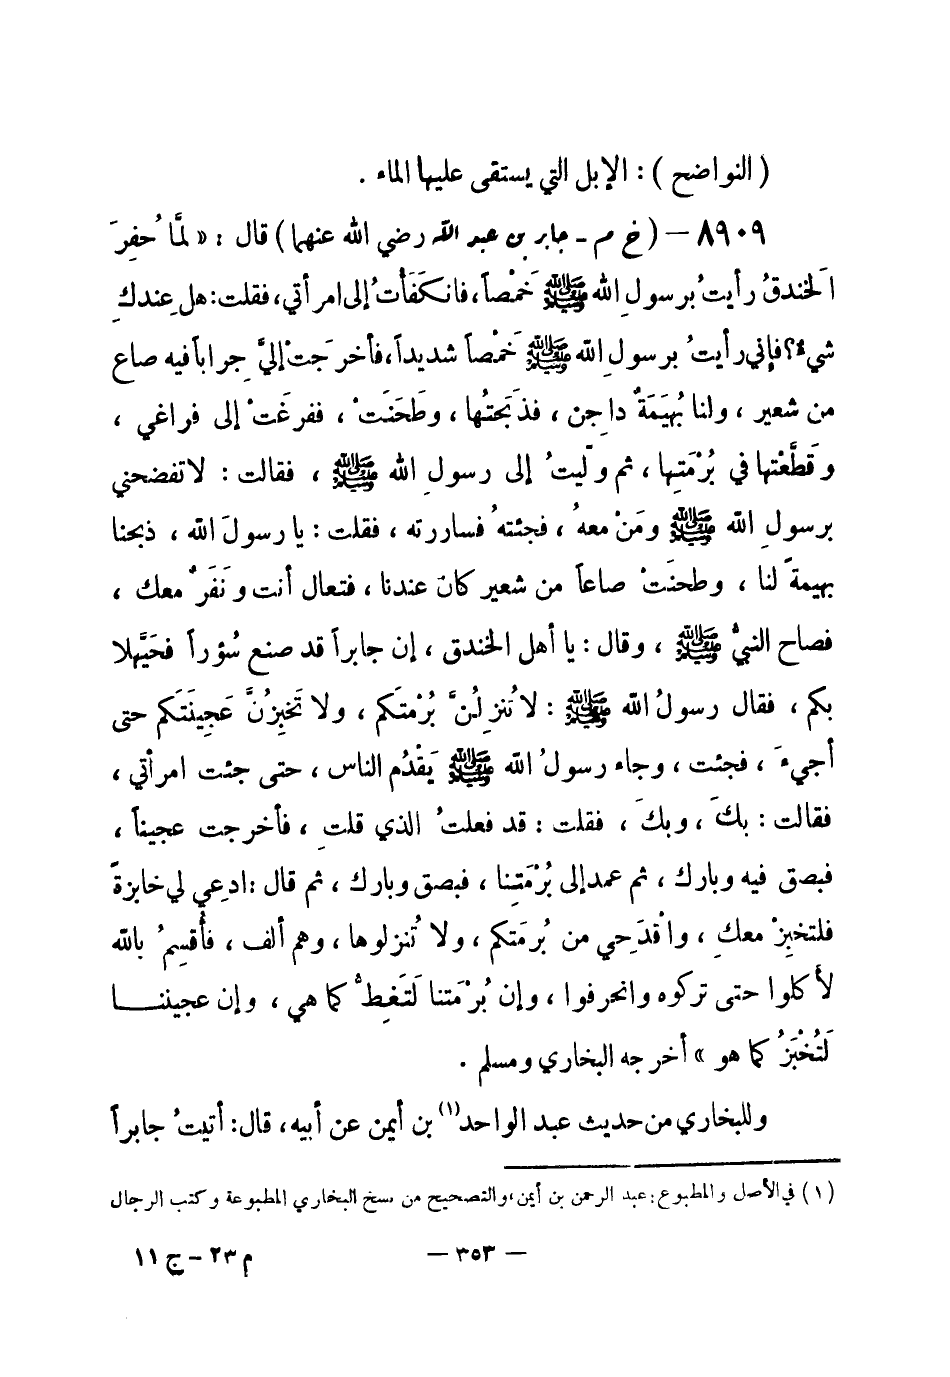 ( النواضح ) : الإبل التي يستقى عليها الماء .
٨٩٠٩ – ( خ م - جابر بن عبد الله رضي الله عنهما ) قال : « لمَّا حُفِرَ
الخندقُ رأيتُ برسولِ الله ﷺ خَمْصاً ، فانكَفَأتُ إلى امرأتي ، فقلت : هل عِندكِ
شيء ؟ فإني رأيتُ برسولِ الله ﷺ خَمْصاً شديداً ، فأخرَجتْ إليَّ جِراباً فيه صاع
من شعير ، ولنا بُهَيمَةٌ داجِن ، فذَبَحتُها ، وطَحَنَتْ ، ففرغَتْ إلى فراغي ،
وقَطَّعْتها في بُرْمَتِها ، ثم ولّيتُ إلى رسولِ الله ﷺ ، فقالت : لا تفضحني
برسولِ الله ﷺ ومَنْ معهُ ، فجئتهُ فساررته ، فقلت : يا رسولَ الله ، ذبحنا
بهيمةً لنا ، وطحنَتْ صاعاً من شعير كان عندنا ، فتعال أنت ونَفَرٌ معك ،
فصاح النبيُّ ﷺ ، وقال : يا أهل الخندق ، إن جابراً قد صنع سُؤراً فحَيَّهلا
بكم ، فقال رسولُ الله ﷺ : لا تُنزِلُنَّ بُرْمتَكم ، ولا تَخبِزُنَّ عَجِينَتَكم حتى
أجيءَ ، فجئت ، وجاء رسولُ الله ﷺ يَقْدُم الناس ، حتى جئت امرأتي ،
فقالت : بكَ ، وبكَ ، فقلت : قد فعلتُ الذي قلتِ ، فأخرجت عجيناً ،
فبصق فيه وبارك ، ثم عمد إلى بُرْمَتِنا ، فبصق وبارك ، ثم قال : ادعِي لي خابزةً
فلتخبِزْ معكِ ، واقْدَحِي من بُرمَتكم ، ولا تُنزلوها ، وهم ألف ، فأُقسِمُ بالله
لأكلوا حتى تركوه وانحرفوا ، وإن بُرْمَتنا لَتَغِطُّ كما هي ، وإن عجيننـــا
لَتُخْبَزُ كما هو » أخرجه البخاري ومسلم .
وللبخاري من حديث عبد الواحد(١) بن أيمن عن أبيه ، قال : أتيتُ جابراً
(١) في الأصل والمطبوع : عبد الرحمن بن أيمن ، والتصحيح من نسخ البخاري المطبوعة وكتب الرجال
– ٣٥٣ –
م ٢٣ – ج ١١